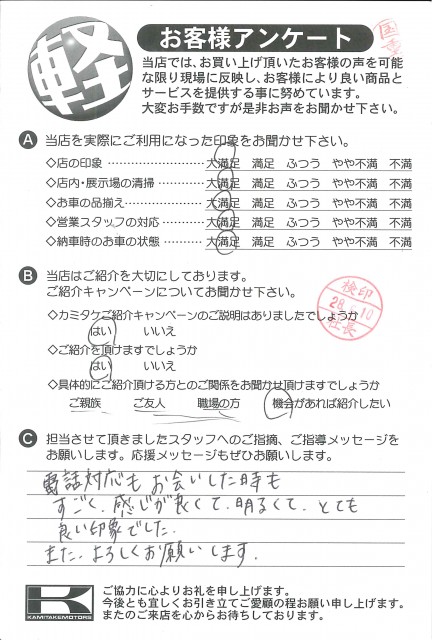 軽
お客様アンケート
当店では、お買い上げ頂いたお客様の声を可能
な限り現場に反映し、お客様により良い商品と
サービスを提供する事に努めています。
大変お手数ですが是非お声をお聞かせ下さい。
A 当店を実際にご利用になった印象をお聞かせ下さい。
◇店の印象 ‥‥‥‥‥‥‥‥ 大満足 満足 ふつう やや不満 不満
◇店内・展示場の清掃 ‥‥‥ 大満足 満足 ふつう やや不満 不満
◇お車の品揃え ‥‥‥‥‥‥ 大満足 満足 ふつう やや不満 不満
◇営業スタッフの対応 ‥‥‥ 大満足 満足 ふつう やや不満 不満
◇納車時のお車の状態 ‥‥‥ 大満足 満足 ふつう やや不満 不満
B 当店はご紹介を大切にしております。
ご紹介キャンペーンについてお聞かせ下さい。
◇カミタケご紹介キャンペーンのご説明はありましたでしょうか
はい いいえ
検印
社長
◇ご紹介を頂けますでしょうか
はい いいえ
◇具体的にご紹介頂ける方とのご関係をお聞かせ頂けますでしょうか
ご親族 ご友人 職場の方 機会があれば紹介したい
C 担当させて頂きましたスタッフへのご指摘、ご指導メッセージを
お願いします。応援メッセージもぜひお願いします。
電話対応も お会いした時も
すごく、感じが良くて、明るくて、とても
良い印象でした。
また、よろしくお願いします。
K
KAMITAKEMOTORS
ご協力に心よりお礼を申し上げます。
今後とも宜しくお引き立てご愛顧の程お願い申し上げます。
またのご来店を心からお待ちしております。